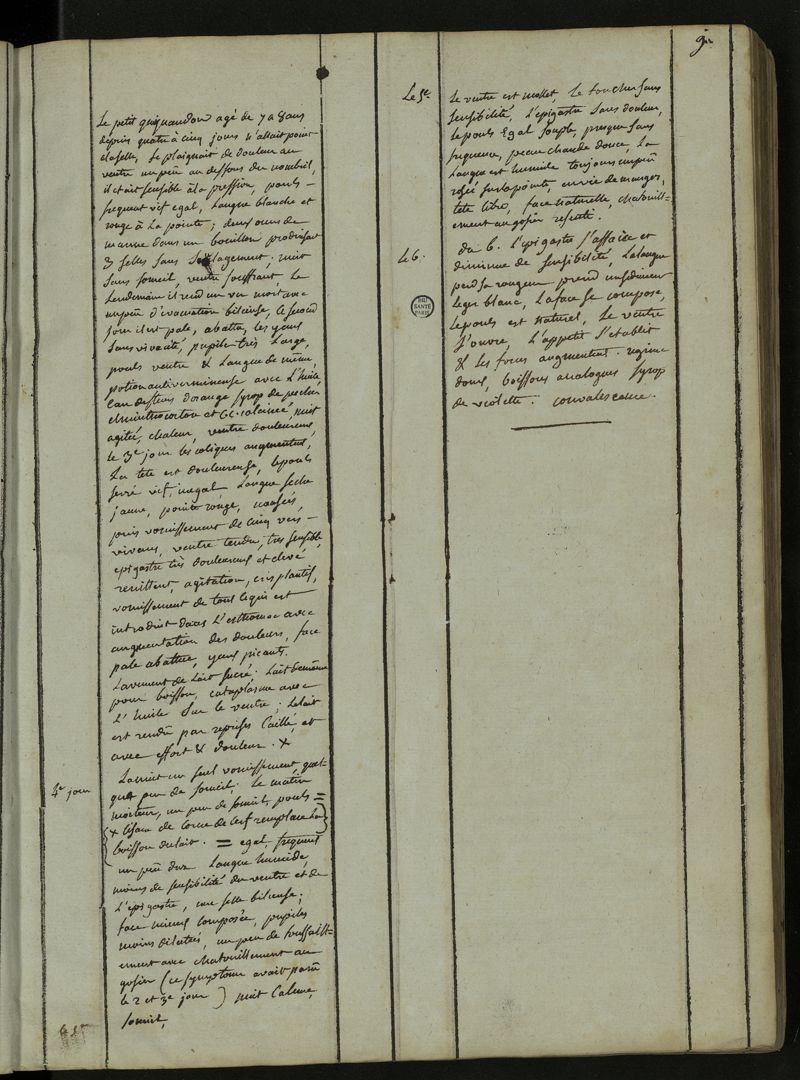 9
Le petit agé de 7 a 8 ans
depuis quatre à cinq jours n'allait point
à la selle, se plaignait de douleur au
ventre un peu au dessous du nombril,
il etait sensible à la pression, pouls
frequent vif egal, Langue blanche et
rouge à La pointe; deux onces de
manne dans un bouillon produisent
3 selles sans Soulagement; nuit
sans sommeil, ventre souffrant, Le
Lendemain il rend un ver mort avec
un peu d'évacuation bilieuse, le second
jour il est pale, abattu, les yeux
sans vivacité, pupille très Large,
pouls ventre & Langue de même,
potion antivermineuse avec L'huile
Eau de fleurs d'orange syrop de pecher
elmintocorton et CC. calciné, nuit
agitée, chaleur, ventre douloureux,
le 3e jour les coliques augmentent,
La tete est douloureuse, le pouls
serré vif, inegal Langue seche
jaune, pointe rouge, nausées,
puis vomissement de cinq vers
vivans, ventre tendu, très sensible,
epigastre très douloureux et elevé
renittent, agitation, cris plaintifs,
vomissement de tout ce qui est
introduit dans L'esthomac avec
augmentation des douleurs, face
pale abattue, yeux picants.
Lavement de Lait sucré. Lait de même
pour boisson, cataplasme avec
L'huile sur le ventre; Le lait
est rendu par reprises Caillé, et
avec effort & douleur. +
4e jour
La nuit un seul vomissement, quel-
que peu de sommeil. Le matin
moiteur, un peu de sommeil, pouls =
+ tisane de Corne de Cerf remplace La
boisson du lait. = egal, frequent
un peu dur Langue humide,
moins de sensibilité du ventre et de
L'epigastre, une selle bilieuse;
face mieux composée, pupilles
moins dilatées, un peu de
avec chatouillement au
gosier (ce symptome avait paru
le 2 et 3e jour) nuit Calme,
sommeil,
Le 5e
Le 5e.
Le ventre est mollet, Le toucher sans
sensibilité, L'epigastre sans douleur,
Le pouls Egal souple, presque sans
frequence, peau chaude douce, La
Langue est humide toujours un peu
rosée sur la pointe, envie de manger,
tete libre, face naturelle, chatouill=
ement au gosier resenti.
Le 6.
du 6. L'epigastre s'affaisse et
diminue de sensibilité, La langue
perd sa rougeur prend un sediment
leger blanc, La face se compose,
Le pouls est naturel, Le ventre
s'ouvre, L'appetit s'etablit
& les forces augmentent. regime
doux, boissons analogues syrop
de violette. convalescence.
BIU
SANTÉ
PARIS